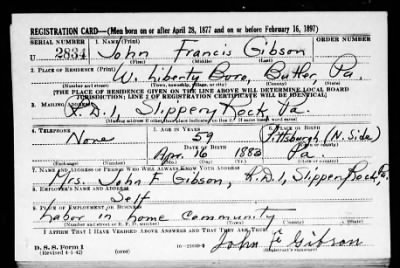 REGISTRATION CARD—(Men born on or after April 28, 1877 and on or before February 16, 1897)
SERIAL NUMBER 1. NAME (Print) ORDER NUMBER
U 2834 John Francis Gibson
(First) (Middle) (Last)
2. PLACE OF RESIDENCE (Print)
W. Liberty Boro, Butler, Pa.
(Number and street) (Town, township, village, or city) (County) (State)
[THE PLACE OF RESIDENCE GIVEN ON THE LINE ABOVE WILL DETERMINE LOCAL BOARD
JURISDICTION; LINE 2 OF REGISTRATION CERTIFICATE WILL BE IDENTICAL]
3. MAILING ADDRESS
R.D. 1 Slippery Rock, Pa.
[Mailing address if other than place indicated on line 2. If same insert word same]
4. TELEPHONE 5. AGE IN YEARS 6. PLACE OF BIRTH
None 59 Pittsburgh (N. Side)
DATE OF BIRTH (Town or county)
Apr. 16 1882 Pa.
(Exchange) (Number) (Mo.) (Day) (Yr.) (State or country)
7. NAME AND ADDRESS OF PERSON WHO WILL ALWAYS KNOW YOUR ADDRESS
Mrs. John F. Gibson, R.D.1, Slippery Rock, Pa.
8. EMPLOYER'S NAME AND ADDRESS
Self
9. PLACE OF EMPLOYMENT OR BUSINESS
Labor in home community
(Number and street or R. F. D. number) (Town) (County) (State)
I AFFIRM THAT I HAVE VERIFIED ABOVE ANSWERS AND THAT THEY ARE TRUE.
D. S. S. Form 1
(Revised 4-1-42) (over)
John F. Gibson
(Registrant's signature)